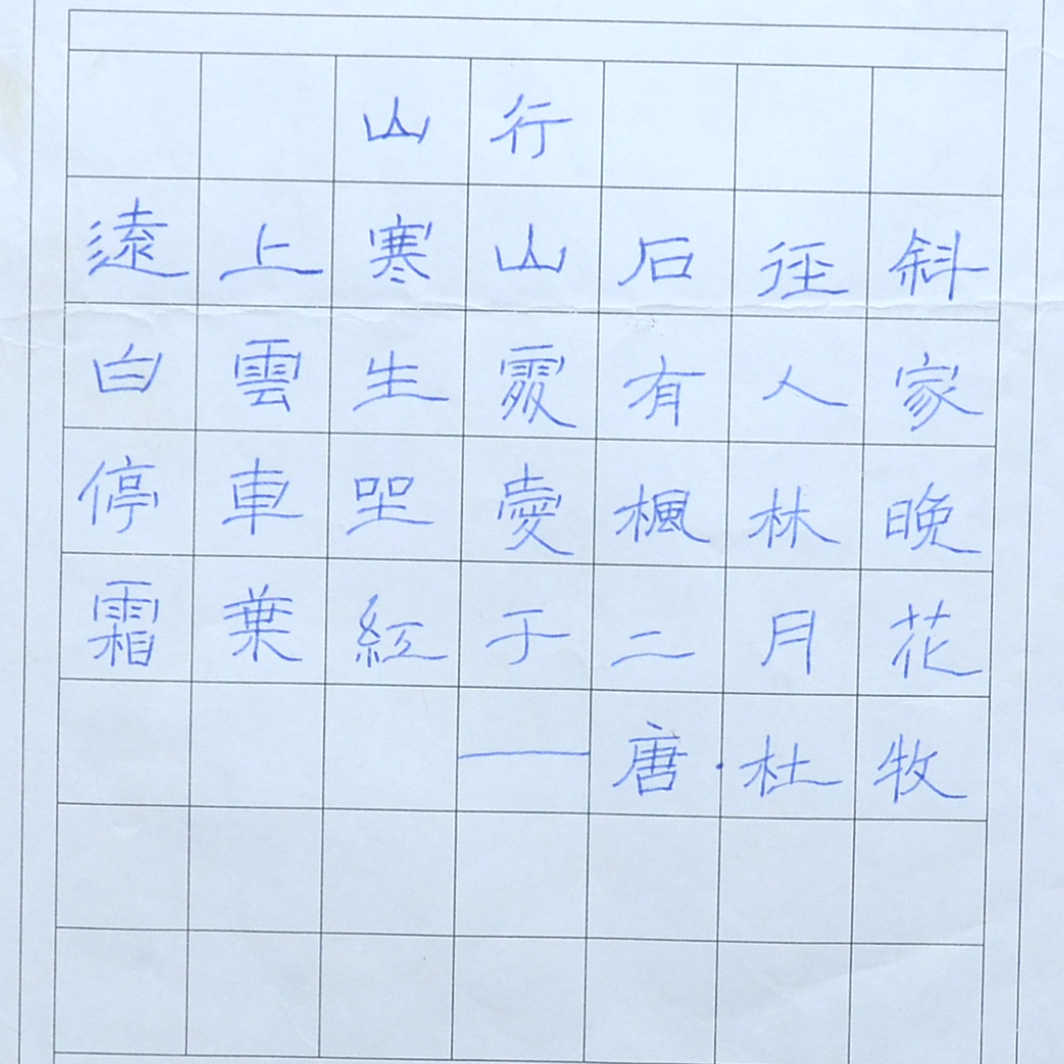 山行
遠上寒山石徑斜
白雲生處有人家
停車坐愛楓林晚
霜葉紅于二月花
——唐·杜牧